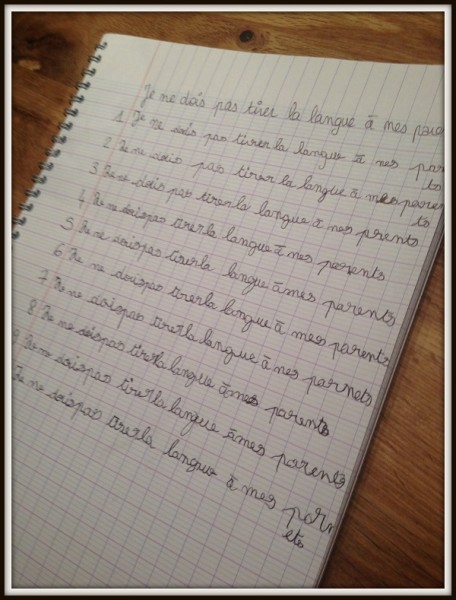 Je ne dois pas tirer la langue à mes pare
1. Je ne dois pas tirer la langue à mes par
ts
2. Je ne dois pas tirer la langue à mes parents
ts
3. Je ne dois pas tirer la langue à mes prents
4. Je ne dois pas tirer la langue à mes parents
5. Je ne dois pas tirer la langue à mes parents
6. Je ne dois pas tirer la langue à mes parents
7. Je ne dois pas tirer la langue à mes parnets
8. Je ne dois pas tirer la langue à mes parents
9. Je ne dois pas tirer la langue à mes parents
Je ne dois pas tirer la langue à mes parn
ets